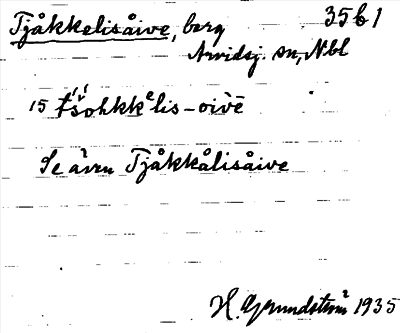 Tjåkkelisåive, berg 35b1
Arvidsj. sn, Nbl
15 t́š́ohkkᵉlis-oìvē
Se även Tjåkkålisåive
H. Grundström 1935